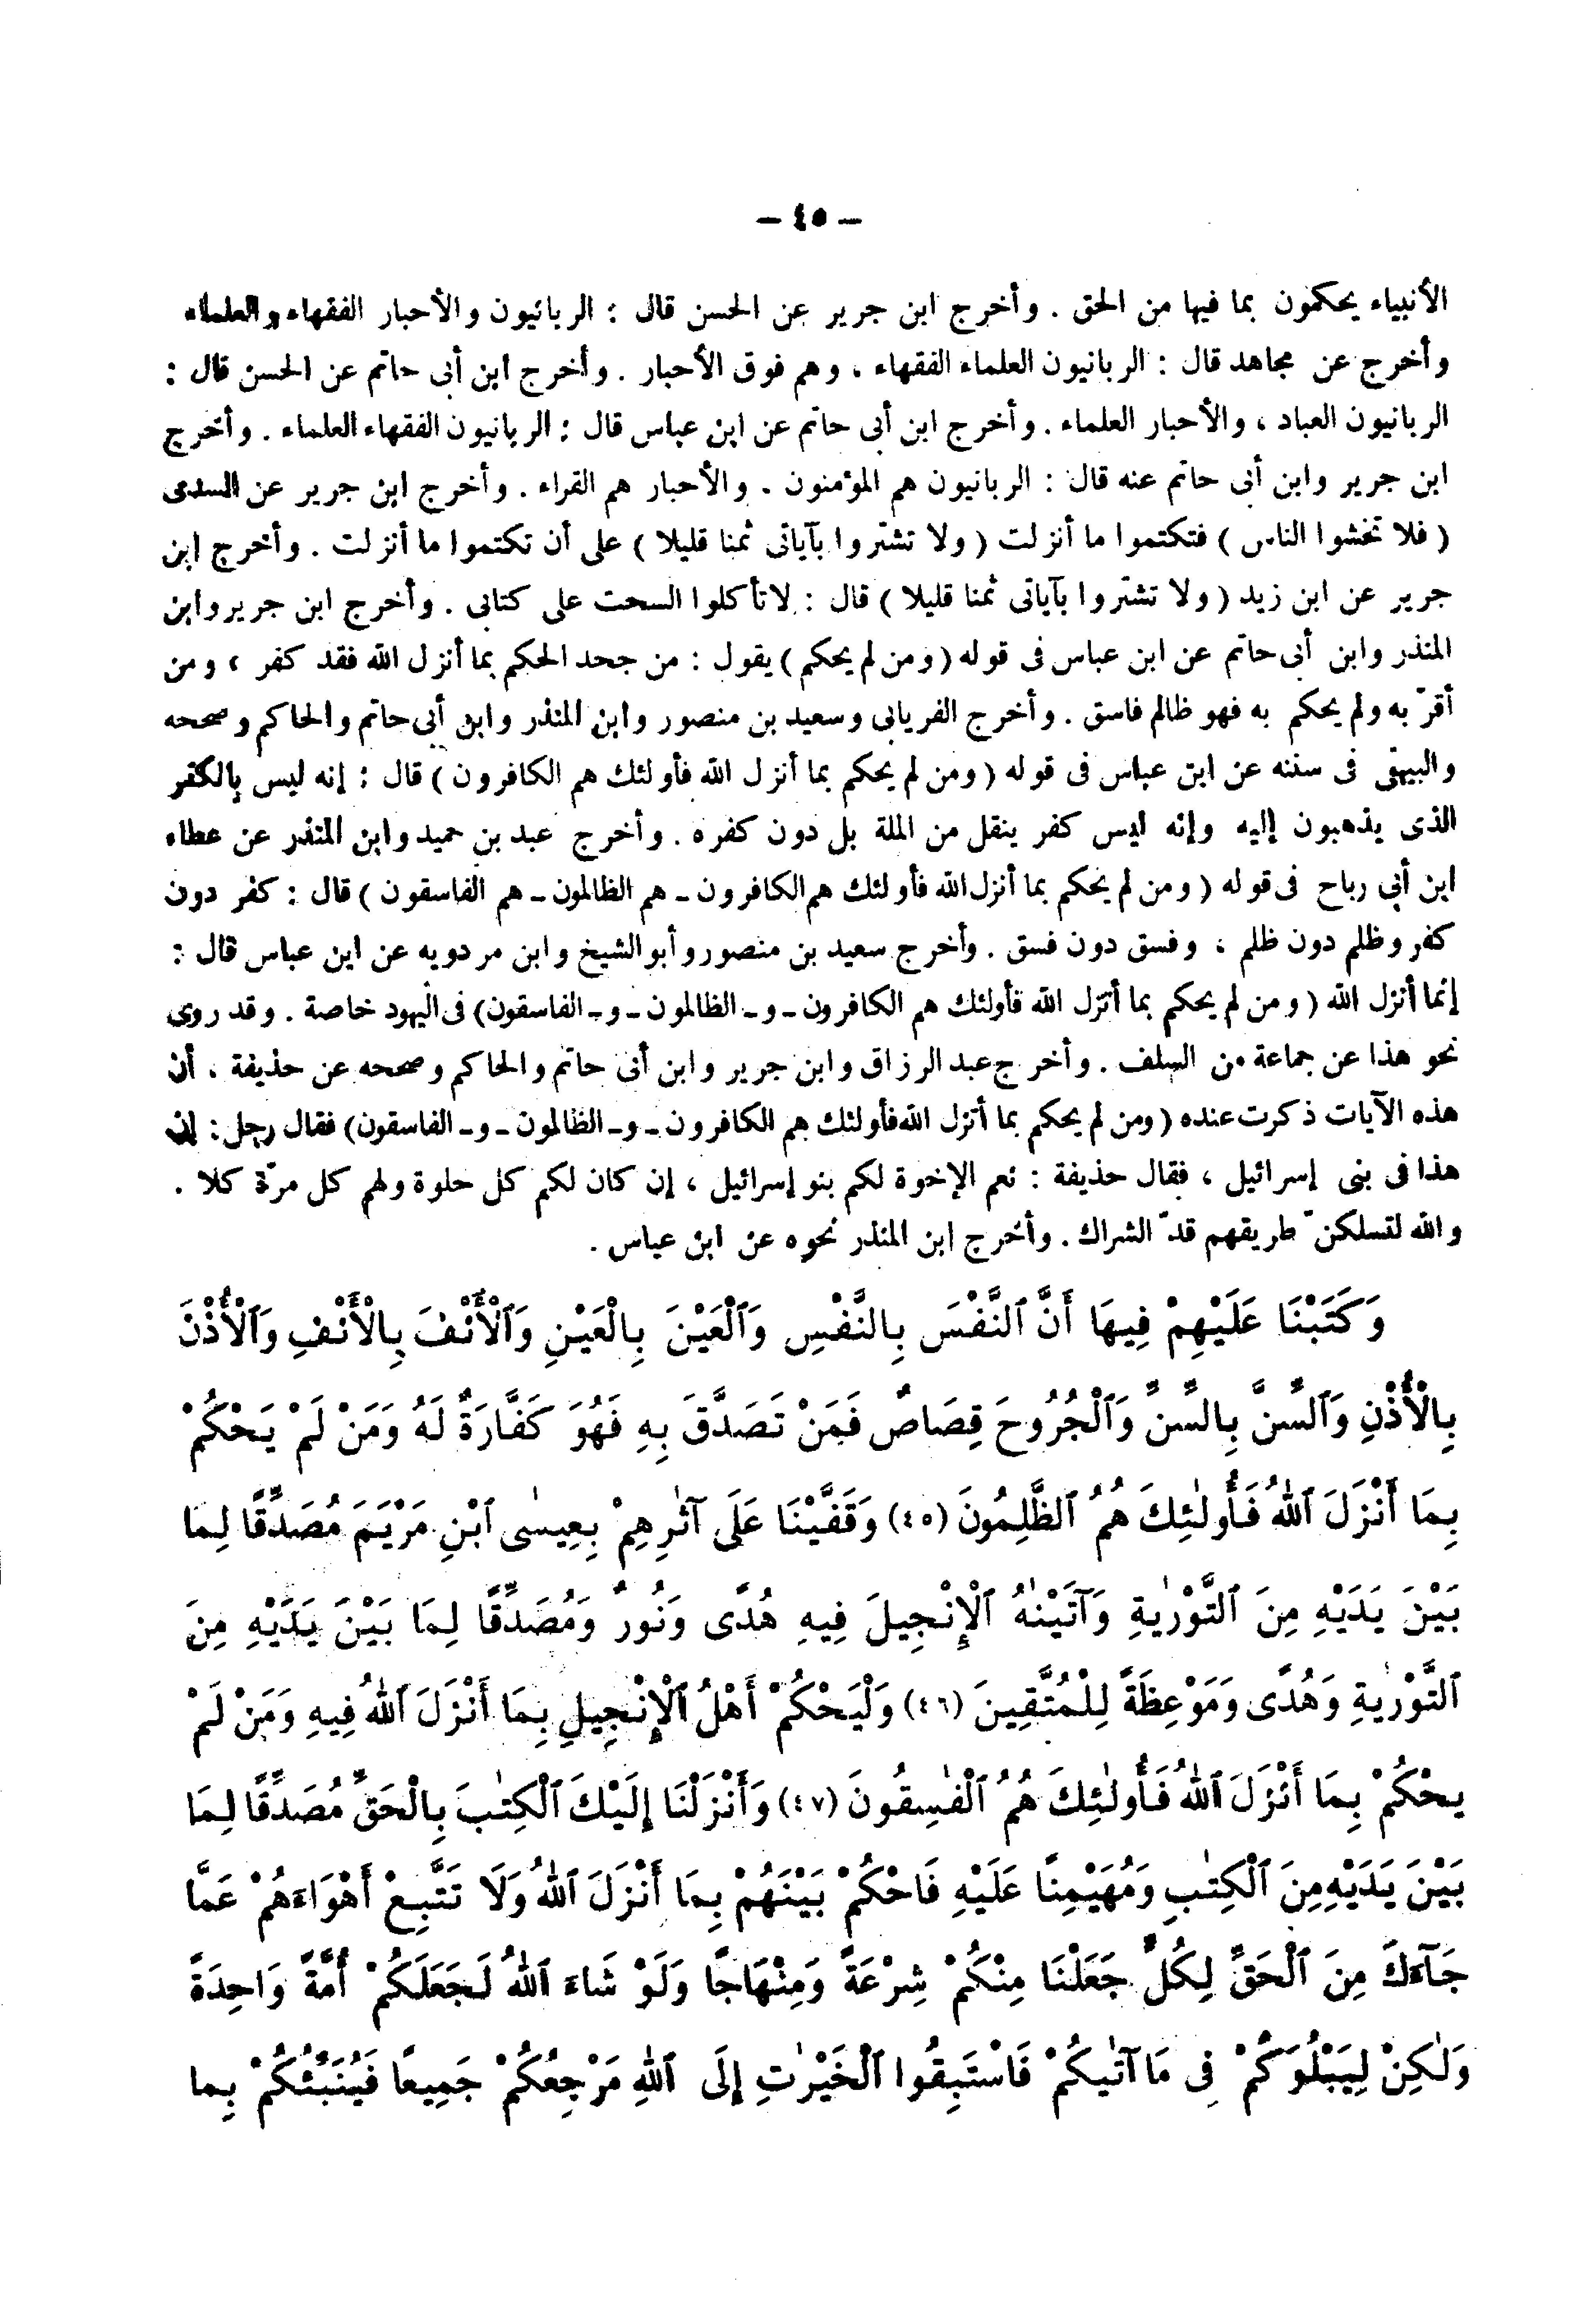 — ٤٥ —
الأنبياء يحكمون بما فيها من الحق . وأخرج ابن جرير عن الحسن قال : الربانيون والأحبار الفقهاء والعلماء
وأخرج عن مجاهد قال : الربانيون العلماء الفقهاء ، وهم فوق الأحبار . وأخرج ابن أبى حاتم عن الحسن قال :
الربانيون العباد ، والأحبار العلماء . وأخرج ابن أبى حاتم عن ابن عباس قال : الربانيون الفقهاء العلماء . وأخرج
ابن جرير وابن أبى حاتم عنه قال : الربانيون هم المؤمنون . والأحبار هم القراء . وأخرج ابن جرير عن السدى
( فلا تخشوا الناس ) فتكتموا ما أنزلت ( ولا تشتروا بآياتى ثمنا قليلا ) على أن تكتموا ما أنزلت . وأخرج ابن
جرير عن ابن زيد ( ولا تشتروا بآياتى ثمنا قليلا ) قال : لا تأكلوا السحت على كتابى . وأخرج ابن جرير وابن
المنذر وابن أبى حاتم عن ابن عباس فى قوله ( ومن لم يحكم ) يقول : من جحد الحكم بما أنزل الله فقد كفر ، ومن
أقرّ به ولم يحكم به فهو ظالم فاسق . وأخرج الفريابى وسعيد بن منصور وابن المنذر وابن أبى حاتم والحاكم وصححه
والبيهقى فى سننه عن ابن عباس فى قوله ( ومن لم يحكم بما أنزل الله فأولئك هم الكافرون ) قال : إنه ليس بالكفر
الذى يذهبون إليه وإنه ليس كفر ينقل من الملة بل دون كفره . وأخرج عبد بن حميد وابن المنذر عن عطاء
ابن أبى رباح فى قوله ( ومن لم يحكم بما أنزل الله فأولئك هم الكافرون ـ هم الظالمون ـ هم الفاسقون ) قال : كفر دون
كفر وظلم دون ظلم ، وفسق دون فسق . وأخرج سعيد بن منصور وأبو الشيخ وابن مردويه عن ابن عباس قال :
إنما أنزل الله ( ومن لم يحكم بما أنزل الله فأولئك هم الكافرون ـ و ـ الظالمون ـ و ـ الفاسقون) فى اليهود خاصة . وقد روى
نحو هذا عن جماعة من السلف . وأخرج عبد الرزاق وابن جرير وابن أبى حاتم والحاكم وصححه عن حذيفة ، أن
هذه الآيات ذكرت عنده ( ومن لم يحكم بما أنزل الله فأولئك هم الكافرون ـ و ـ الظالمون ـ و ـ الفاسقون) فقال رجل : إن
هذا فى بنى إسرائيل ، فقال حذيفة : نعم الإخوة لكم بنو إسرائيل ، إن كان لكم كل حلوة ولهم كل مرّة كلا .
والله لتسلكنّ طريقهم قدّ الشراك . وأخرج ابن المنذر نحوه عن ابن عباس .
وَكَتَبْنَا عَلَيْهِمْ فِيهَا أَنَّ ٱلنَّفْسَ بِالنَّفْسِ وَٱلْعَيْنَ بِالْعَيْنِ وَٱلْأَنْفَ بِالْأَنْفِ وَٱلْأُذُنَ
بِالْأُذُنِ وَٱلسِّنَّ بِالسِّنِّ وَٱلْجُرُوحَ قِصَاصٌ فَمَنْ تَصَدَّقَ بِهِ فَهُوَ كَفَّارَةٌ لَهُ وَمَنْ لَمْ يَحْكُمْ
بِمَا أَنْزَلَ ٱللهُ فَأُولٰئِكَ هُمُ ٱلظَّلِمُونَ (٤٥) وَقَفَّيْنَا عَلَى آثٰرِهِمْ بِعِيسٰى ٱبْنِ مَرْيَمَ مُصَدِّقًا لِمَا
بَيْنَ يَدَيْهِ مِنَ ٱلتَّوْرٰيةِ وَآتَيْنٰهُ ٱلْإِنْجِيلَ فِيهِ هُدًى وَنُورٌ وَمُصَدِّقًا لِمَا بَيْنَ يَدَيْهِ مِنَ
ٱلتَّوْرٰيةِ وَهُدًى وَمَوْعِظَةً لِلْمُتَّقِينَ (٤٦) وَلْيَحْكُمْ أَهْلُ ٱلْإِنْجِيلِ بِمَا أَنْزَلَ ٱللهُ فِيهِ وَمَنْ لَمْ
يحْكُمْ بِمَا أَنْزَلَ ٱللهُ فَأُولٰئِكَ هُمُ ٱلْفٰسِقُونَ (٤٧) وَأَنْزَلْنَا إِلَيْكَ ٱلْكِتٰبَ بِالْحَقِّ مُصَدِّقًا لِمَا
بَيْنَ يَدَيْهِ مِنَ ٱلْكِتٰبِ وَمُهَيْمِنًا عَلَيْهِ فَاحْكُمْ بَيْنَهُمْ بِمَا أَنْزَلَ ٱللهُ وَلَا تَتَّبِعْ أَهْوَاءَهُمْ عَمَّا
جَآءَكَ مِنَ ٱلْحَقِّ لِكُلٍّ جَعَلْنَا مِنْكُمْ شِرْعَةً وَمِنْهَاجًا وَلَوْ شَاءَ ٱللهُ لَجَعَلَكُمْ أُمَّةً وَاحِدَةً
وَلٰكِنْ لِيَبْلُوَكُمْ فِى مَا آتٰيكُمْ فَاسْتَبِقُوا ٱلْخَيْرٰتِ إِلَى ٱللهِ مَرْجِعُكُمْ جَمِيعًا فَيُنَبِّئُكُمْ بِما